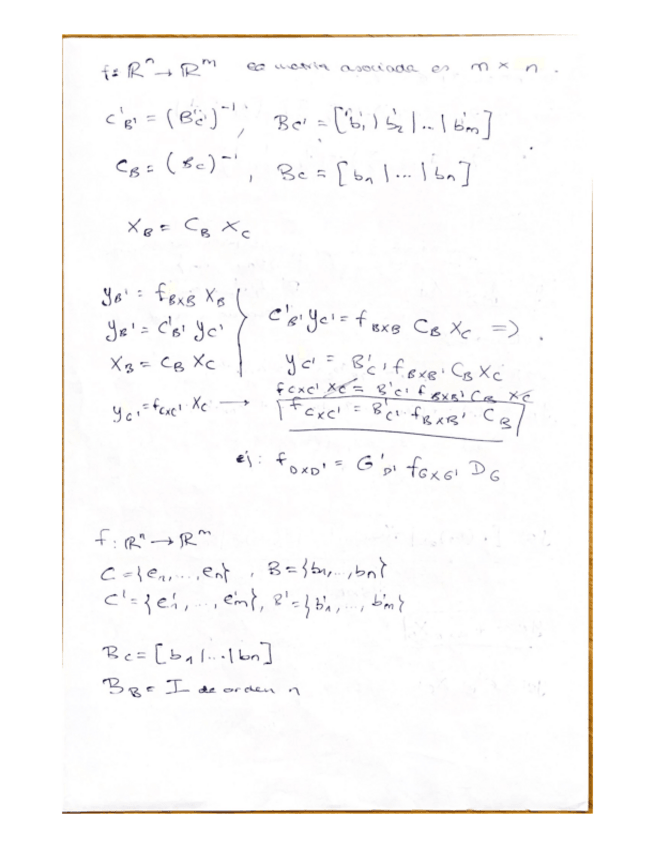 f: ℝⁿ → ℝᵐ la matriz asociada es m × n.
C'_B' = (B'_C')⁻¹, B_C' = [b'₁ | b'₂ | ... | b'm]
C_B = (B_C)⁻¹, B_C = [b₁ | ... | bn]
X_B = C_B X_C
y_B' = f_BxB X_B
y_B' = C'_B' y_C'
X_B = C_B X_C
C'_B' y_C' = f_BxB C_B X_C =>
y_C' = B'_C' f_BxB' C_B X_C
f_CxC' X_C = B'_C' f_BxB' C_B X_C
y_C' = f_CxC' X_C → f_CxC' = B'_C' f_BxB' C_B
ej: f_DxD' = G'_D' f_GxG' D_G
f: ℝⁿ → ℝᵐ
C = {e₁, ..., en}, B = {b₁, ..., bn}
C' = {e'₁, ..., e'm}, B' = {b'₁, ..., b'm}
B_C = [b₁ | ... | bn]
B_B = I de orden n